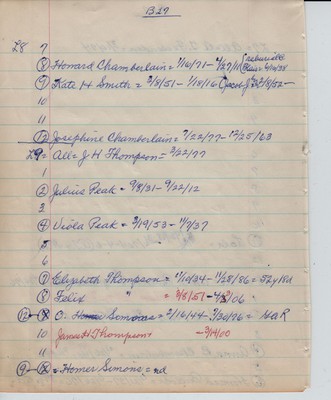 B29
L8 7
8 Howard Chamberlain = 1/16/71 - 2/27/18
9 Kate H Smith = 2/8/51 - 1/18/16
10
11
12 Josephine Chamberlain = 7/22/77 - 12/25/63
L9 = All = J H Thompson = 2/22/77
1
2 Julius Peak = 9/8/31 - 9/22/12
3
4 Viola Peak = 3/19/53 - 11/7/37
5
6
7 Elizabeth Thompson = 11/10/34 - 11/28/86 = 52y 18d
8 Felix " = 3/8/51 - /06
12 O. Simons = 2/16/44 - 3/30/96 = GAR
10 James H Thompson - 3/4/00
11
9 = Homer Simons = nd